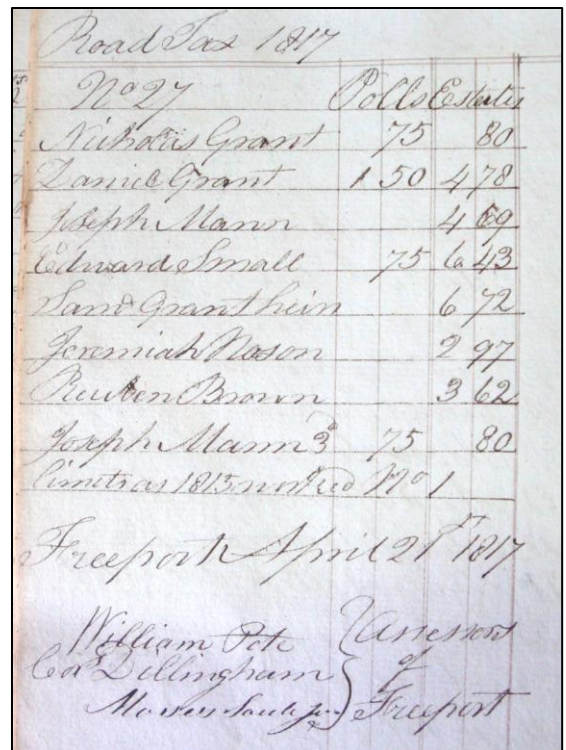 Road Tax 1817
No 27 Polls Estates
Nicholas Grant 75 80
Daniel Grant 1 50 4 78
Joseph Mann 4 69
Edward Small 75 6 43
Saml Grant heirs 6 72
Jeremiah Nason 2 97
Reuben Brown 3 62
Joseph Mann 3d 75 80
limits as 1815 No 1
Freeport April 21st 1817
William Pote } Assessors
Cor Dillingham } of
Moses Soule jun } Freeport